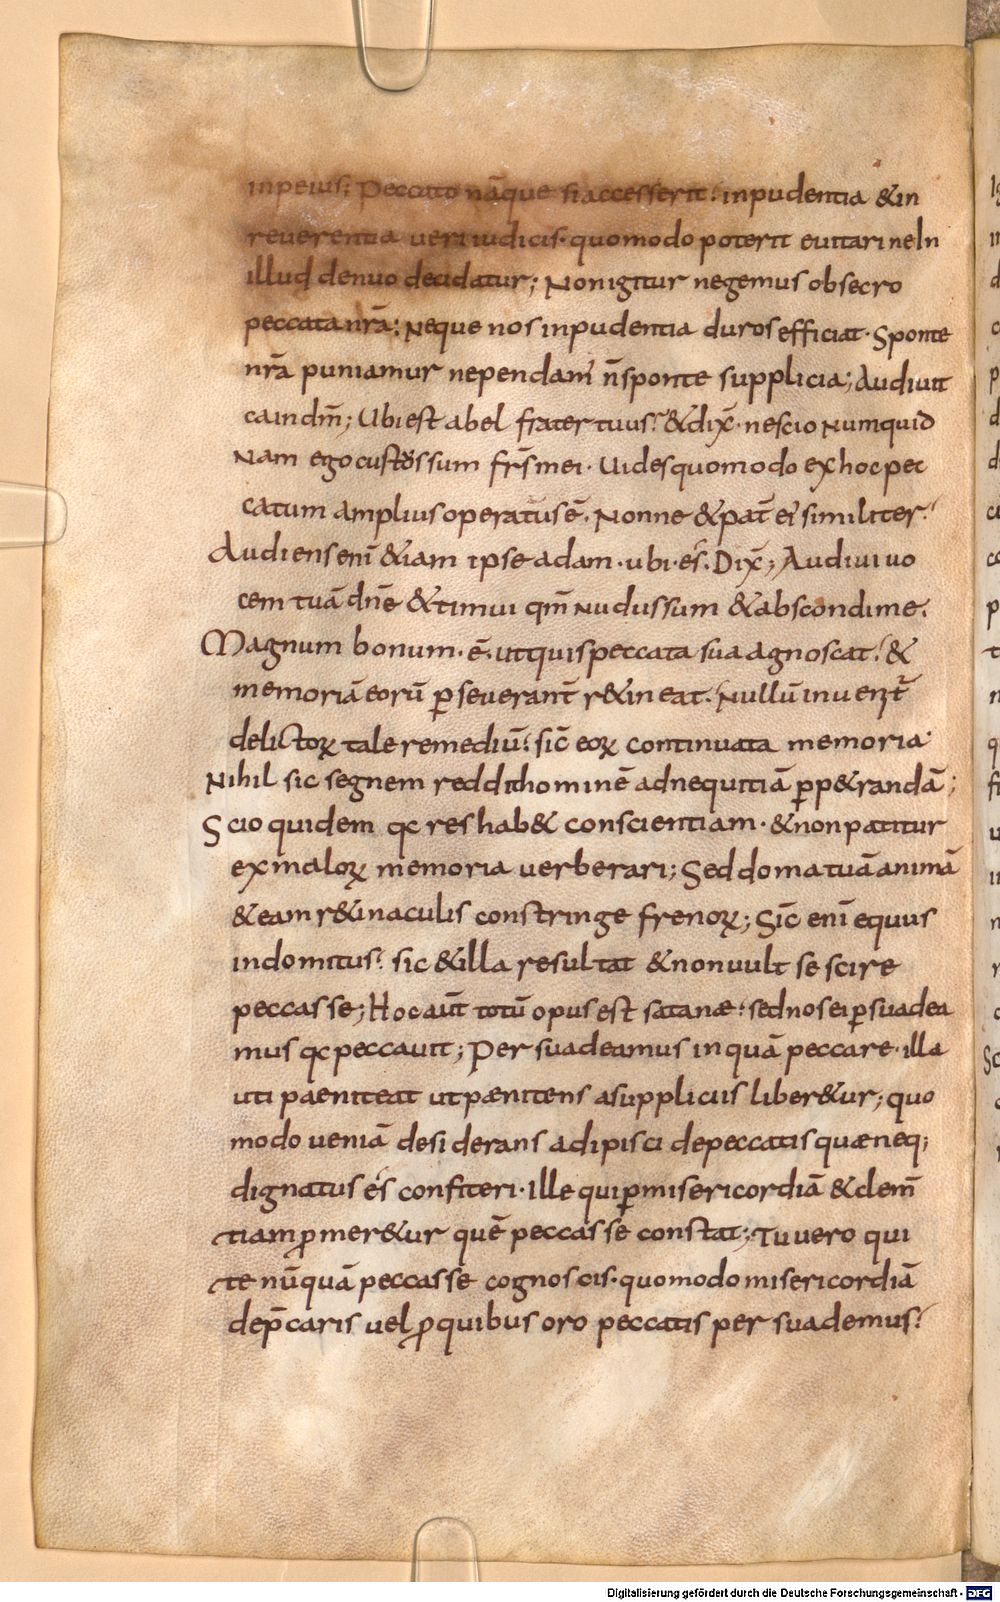 inpeius; Peccato nāque si accesserit. inpudentia &in
reuerentia ueri iudicis· quomodo poterit euitari neIn
illud denuo decidatur; Non igitur negemus obsecro
peccata nr̄a; Neque nos inpudentia duros efficiat· Sponte
nr̄a puniamur ne pendam' n̄sponte supplicia; Audiuit
cain dm̄; Ubi est abel frater tuus? & dix̄· nescio Numquid
Nam ego custos sum fr̄s mei· Uides quomodo ex hoc pec
catum amplius operatus ē. Nonne & pat̄ ei' similiter?
Audiens enī &iam ipse adam· ubi· es. Dix̄; Audiui uo
cem tuā dn̄e & timui qm̄ Nudus sum & abscondi me.
Magnum bonum· ē· ut quis peccata sua agnoscat. &
memoriā eorū ꝑseuerant̄ r&ineat. Nullū inuenit᷑
delictoꝝ tale remediū. sic̄ eoꝝ continuata memoria·
Nihil sic segnem reddit hominē ad nequitiā ꝑp&randā;
Scio quidem qc res hab& conscientiam· & non patitur
ex maloꝝ memoria uerberari; Sed doma tuā animā
& eam r&inaculis constringe frenoꝝ; Sic̄ enī equus
indomitus. sic & illa resultat & non uult se scire
peccasse; Hoc aūt totū opus est satanæ· sed nos ei ꝑsuadea
mus qc peccauit; Persuadeamus inquā peccare· illa
uti paeniteat ut pænitens a suppliciis liber&ur; quo
modo ueniā desiderans adipisci de peccatis quæ neq;
dignatus es confiteri· Ille qui ꝑ misericordiā & clem̄
tiam ꝓmer&ur quē peccasse constat; Tu uero qui
te nūquā peccasse cognoscis· quomodo misericordiā
dep̄caris uel ꝓ quibus oro peccatis persuademus?
Digitalisierung gefördert durch die Deutsche Forschungsgemeinschaft - DFG